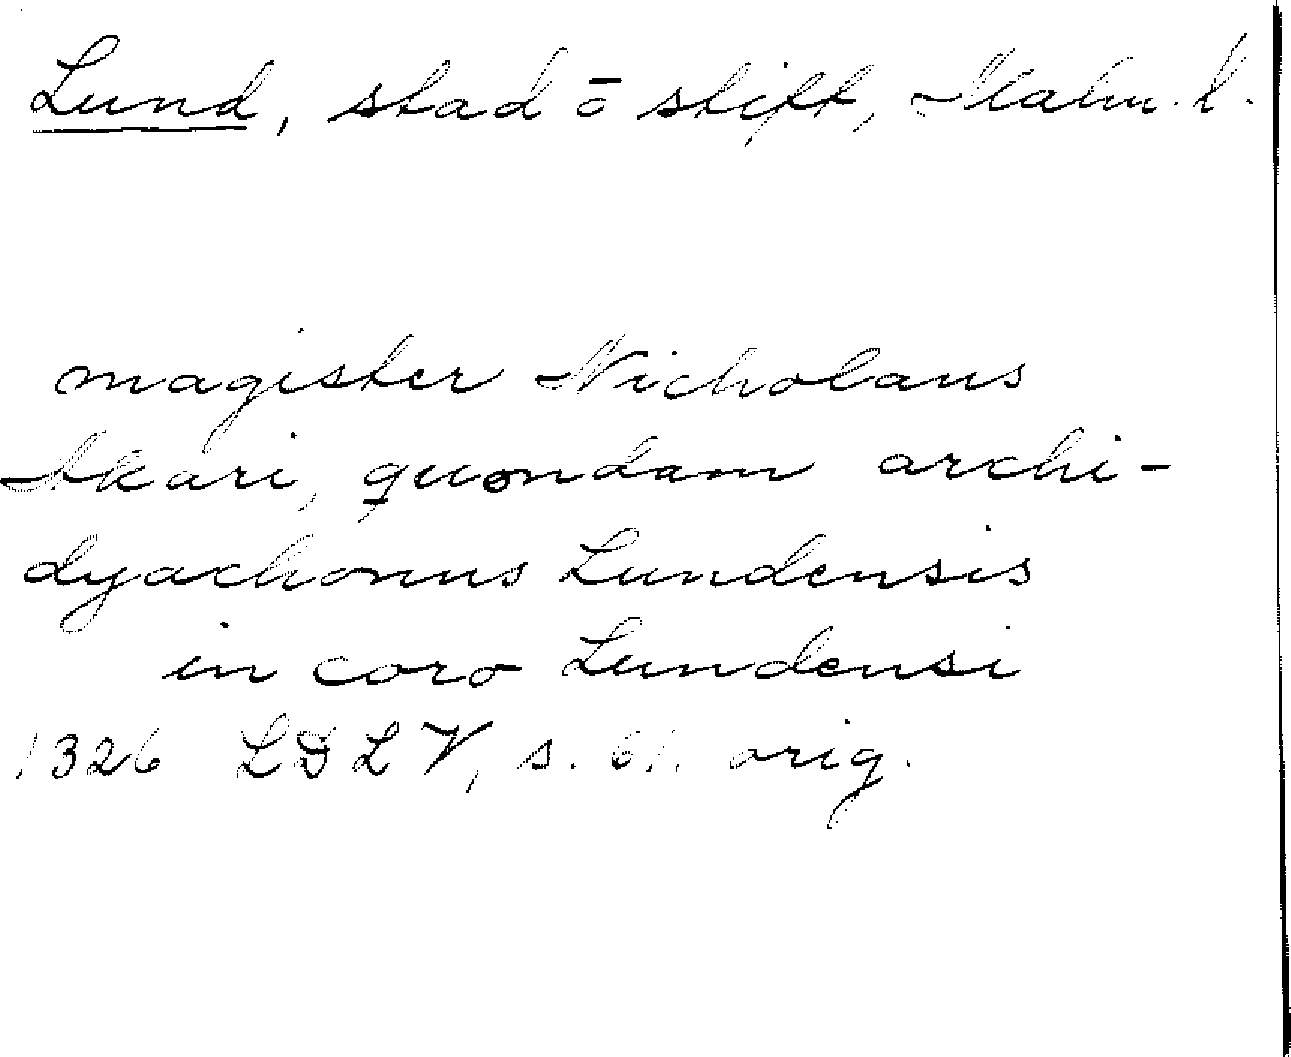 Lund, stad o stift, Malm. l.
magister Nicholaus
Skari, quondam archi-
dyachonus Lundensis
in coro Lundensi
1326 LDLV, s. 61. orig.